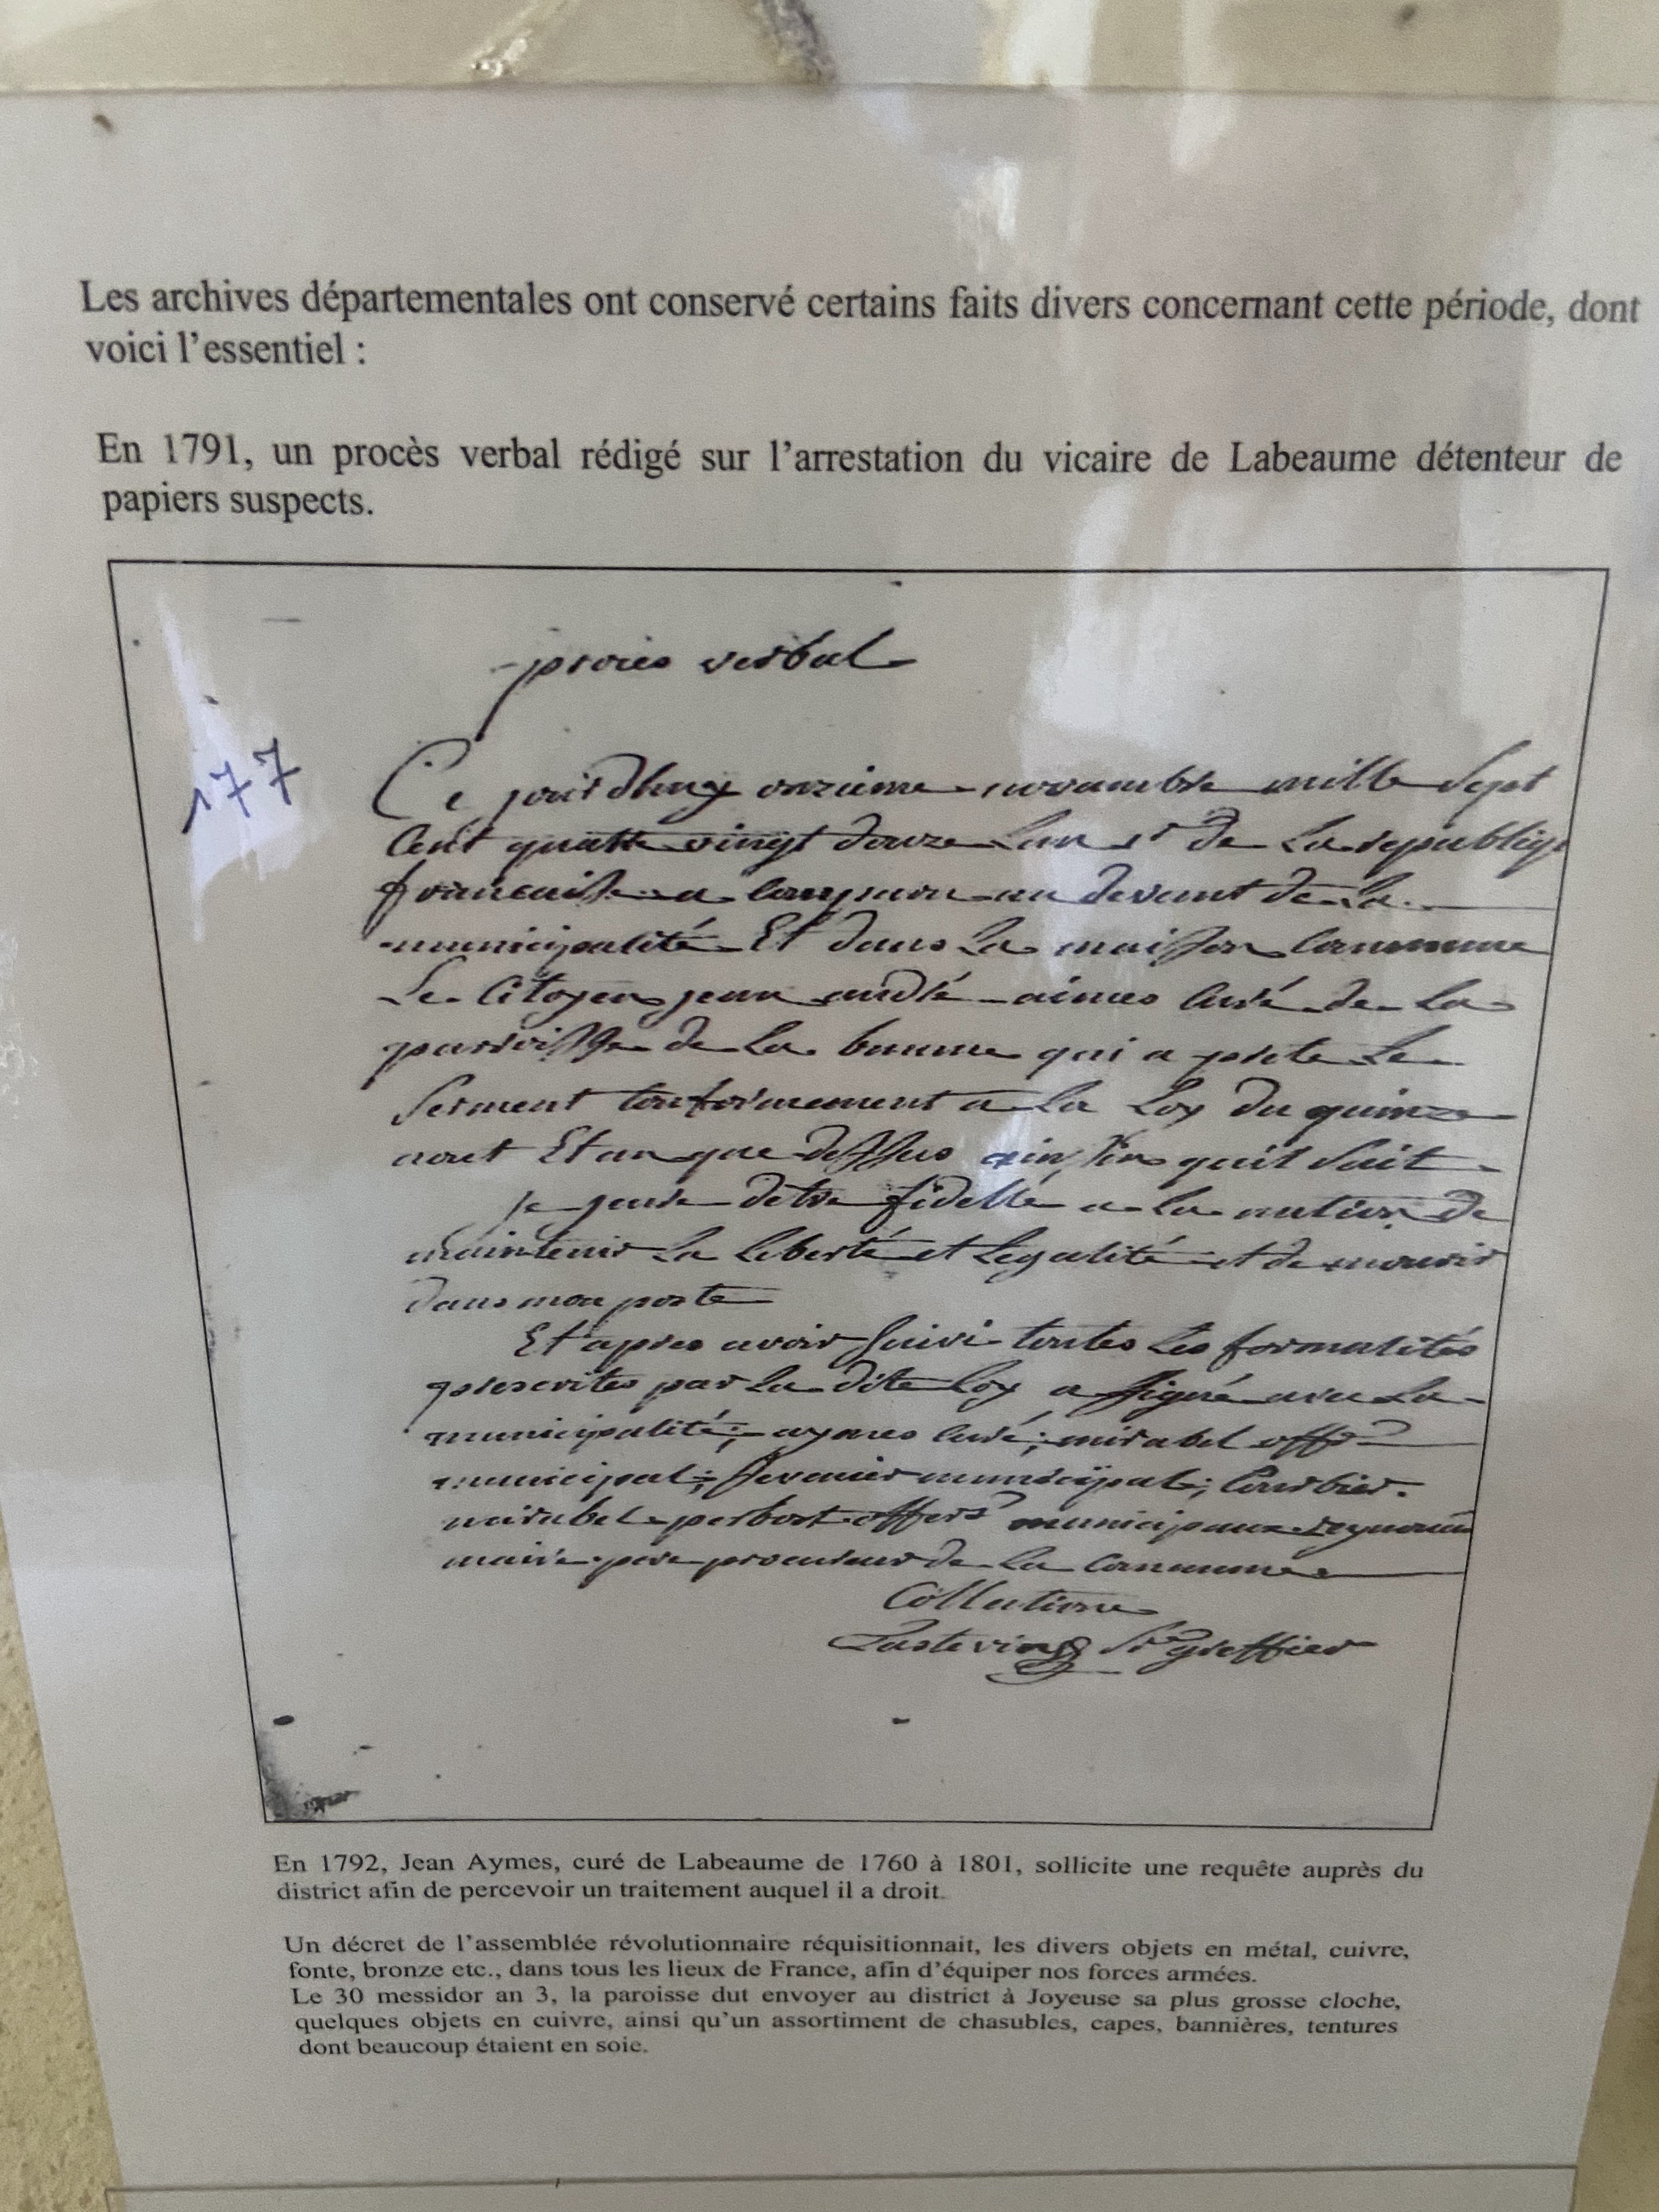 Les archives départementales ont conservé certains faits divers concernant cette période, dont
voici l'essentiel :
En 1791, un procès verbal rédigé sur l'arrestation du vicaire de Labeaume détenteur de
papiers suspects.
procès verbal
177
Ce jourdhuy onzieme novambre mille sept
Cent quatre vingt douze Lan 1r de La republiq
francaise a au devant de La
municipalité Et dans La maison Commune
Le Citoyen jean andré aimes Curé de La
parroisse de La baume qui a prete Le
serment Conformement a La Loy du quinze
aout Et an que dessus ainsin quil suit
je jure detre fidelle a La nation de
maintenir La Liberté et Legalité et de mourir
dans mon poste
Et apres avoir suivi toutes Les formalités
prescrites par La dite Loy a signé avec La
municipalité; aymes Curé; mirabel offr
municipal; municipal;
mirabel perbost offers municipaux
maire procureur de La Commune
Collatione
greffier
En 1792, Jean Aymes, curé de Labeaume de 1760 à 1801, sollicite une requête auprès du
district afin de percevoir un traitement auquel il a droit.
Un décret de l'assemblée révolutionnaire réquisitionnait, les divers objets en métal, cuivre,
fonte, bronze etc., dans tous les lieux de France, afin d'équiper nos forces armées.
Le 30 messidor an 3, la paroisse dut envoyer au district à Joyeuse sa plus grosse cloche,
quelques objets en cuivre, ainsi qu'un assortiment de chasubles, capes, bannières, tentures
dont beaucoup étaient en soie.